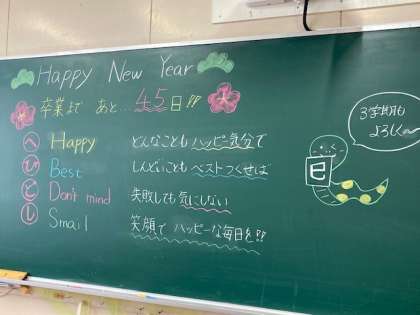 Happy New Year
卒業まで あと…45日!!
へ Happy どんなことも ハッピ気分で
び Best しんどいことも ベストつくせば
ど Don't mind 失敗しても 気にしない
し Smail 笑顔で ハッピーな毎日を!!
3学期も
よろしく〜
巳